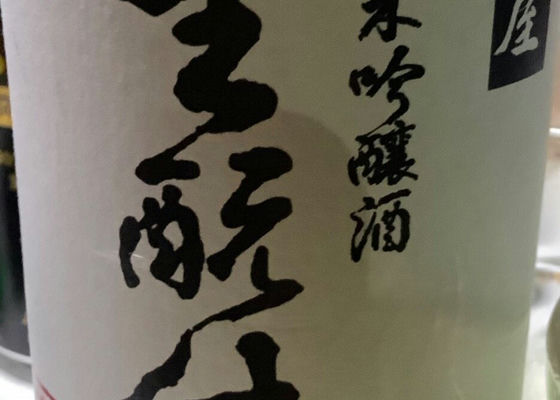 屋
米吟醸酒
生酛仕